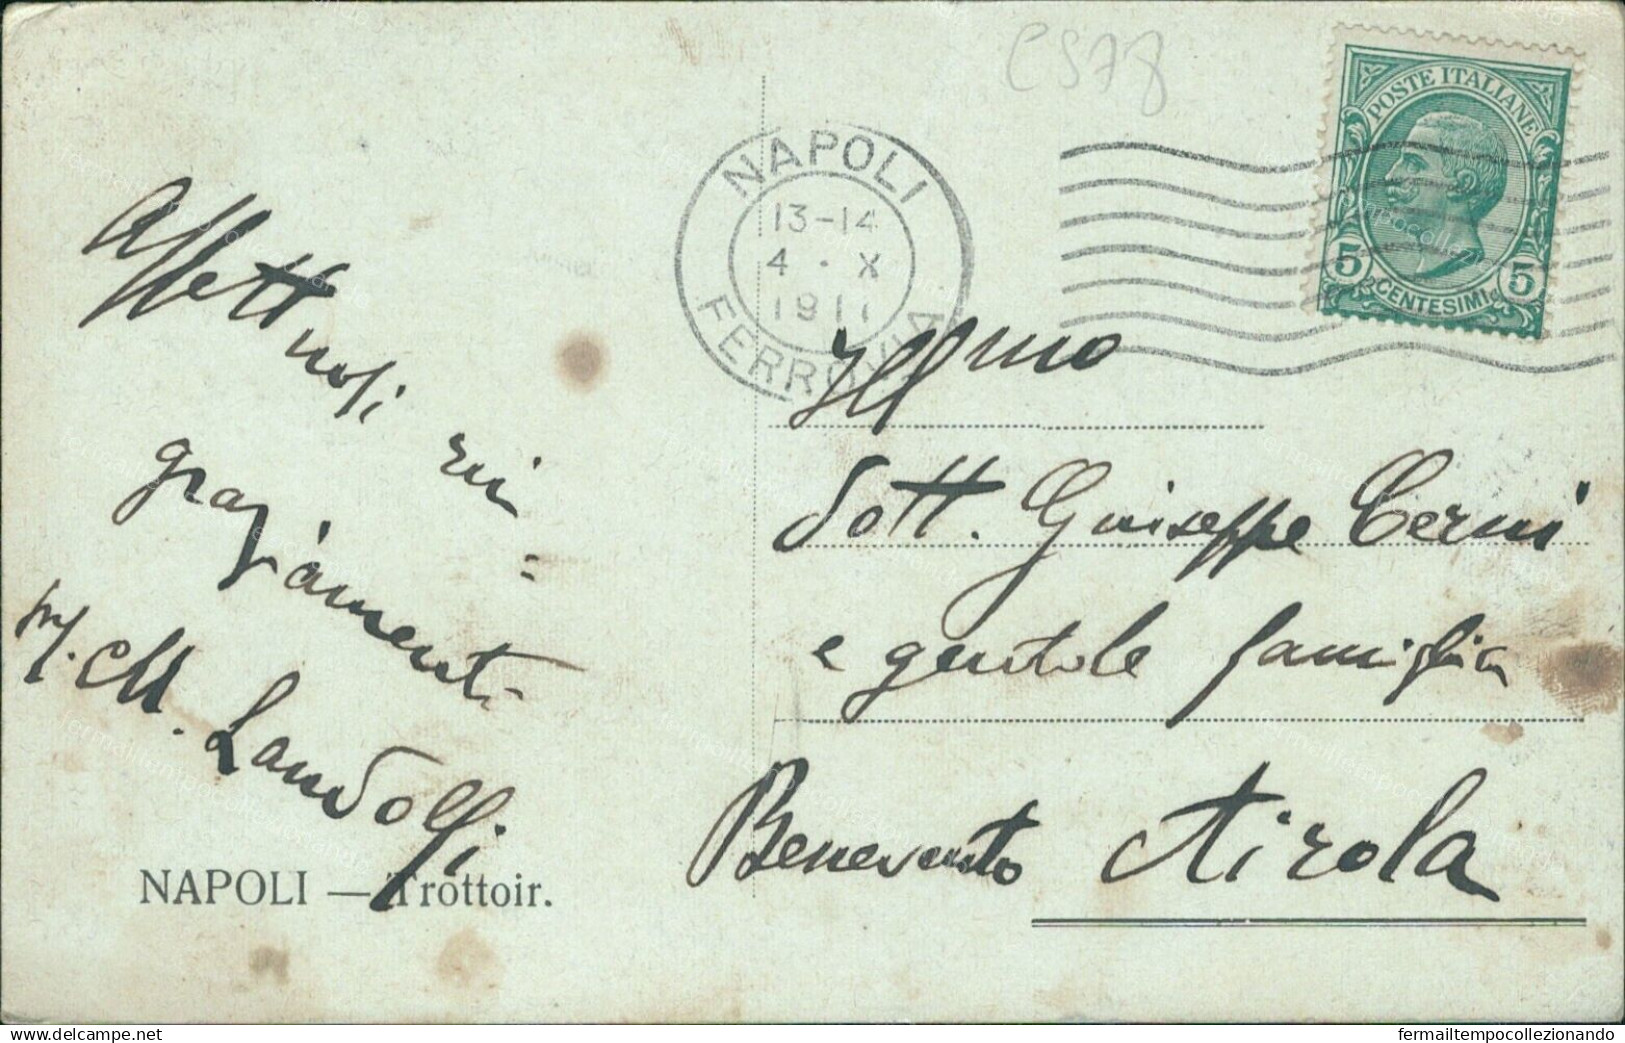 CS78
POSTE ITALIANE
5 CENTESIMI 5
NAPOLI
13-14
4 · X
1911
FERROVIA
Affettuosi rin=
graziamenti
M. Landolfi
NAPOLI — Trottoir.
Illmo
Dott. Giuseppe Cerni
e gentile famiglia
Benevento Airola
delcampe.net
fermailtempocollezionando